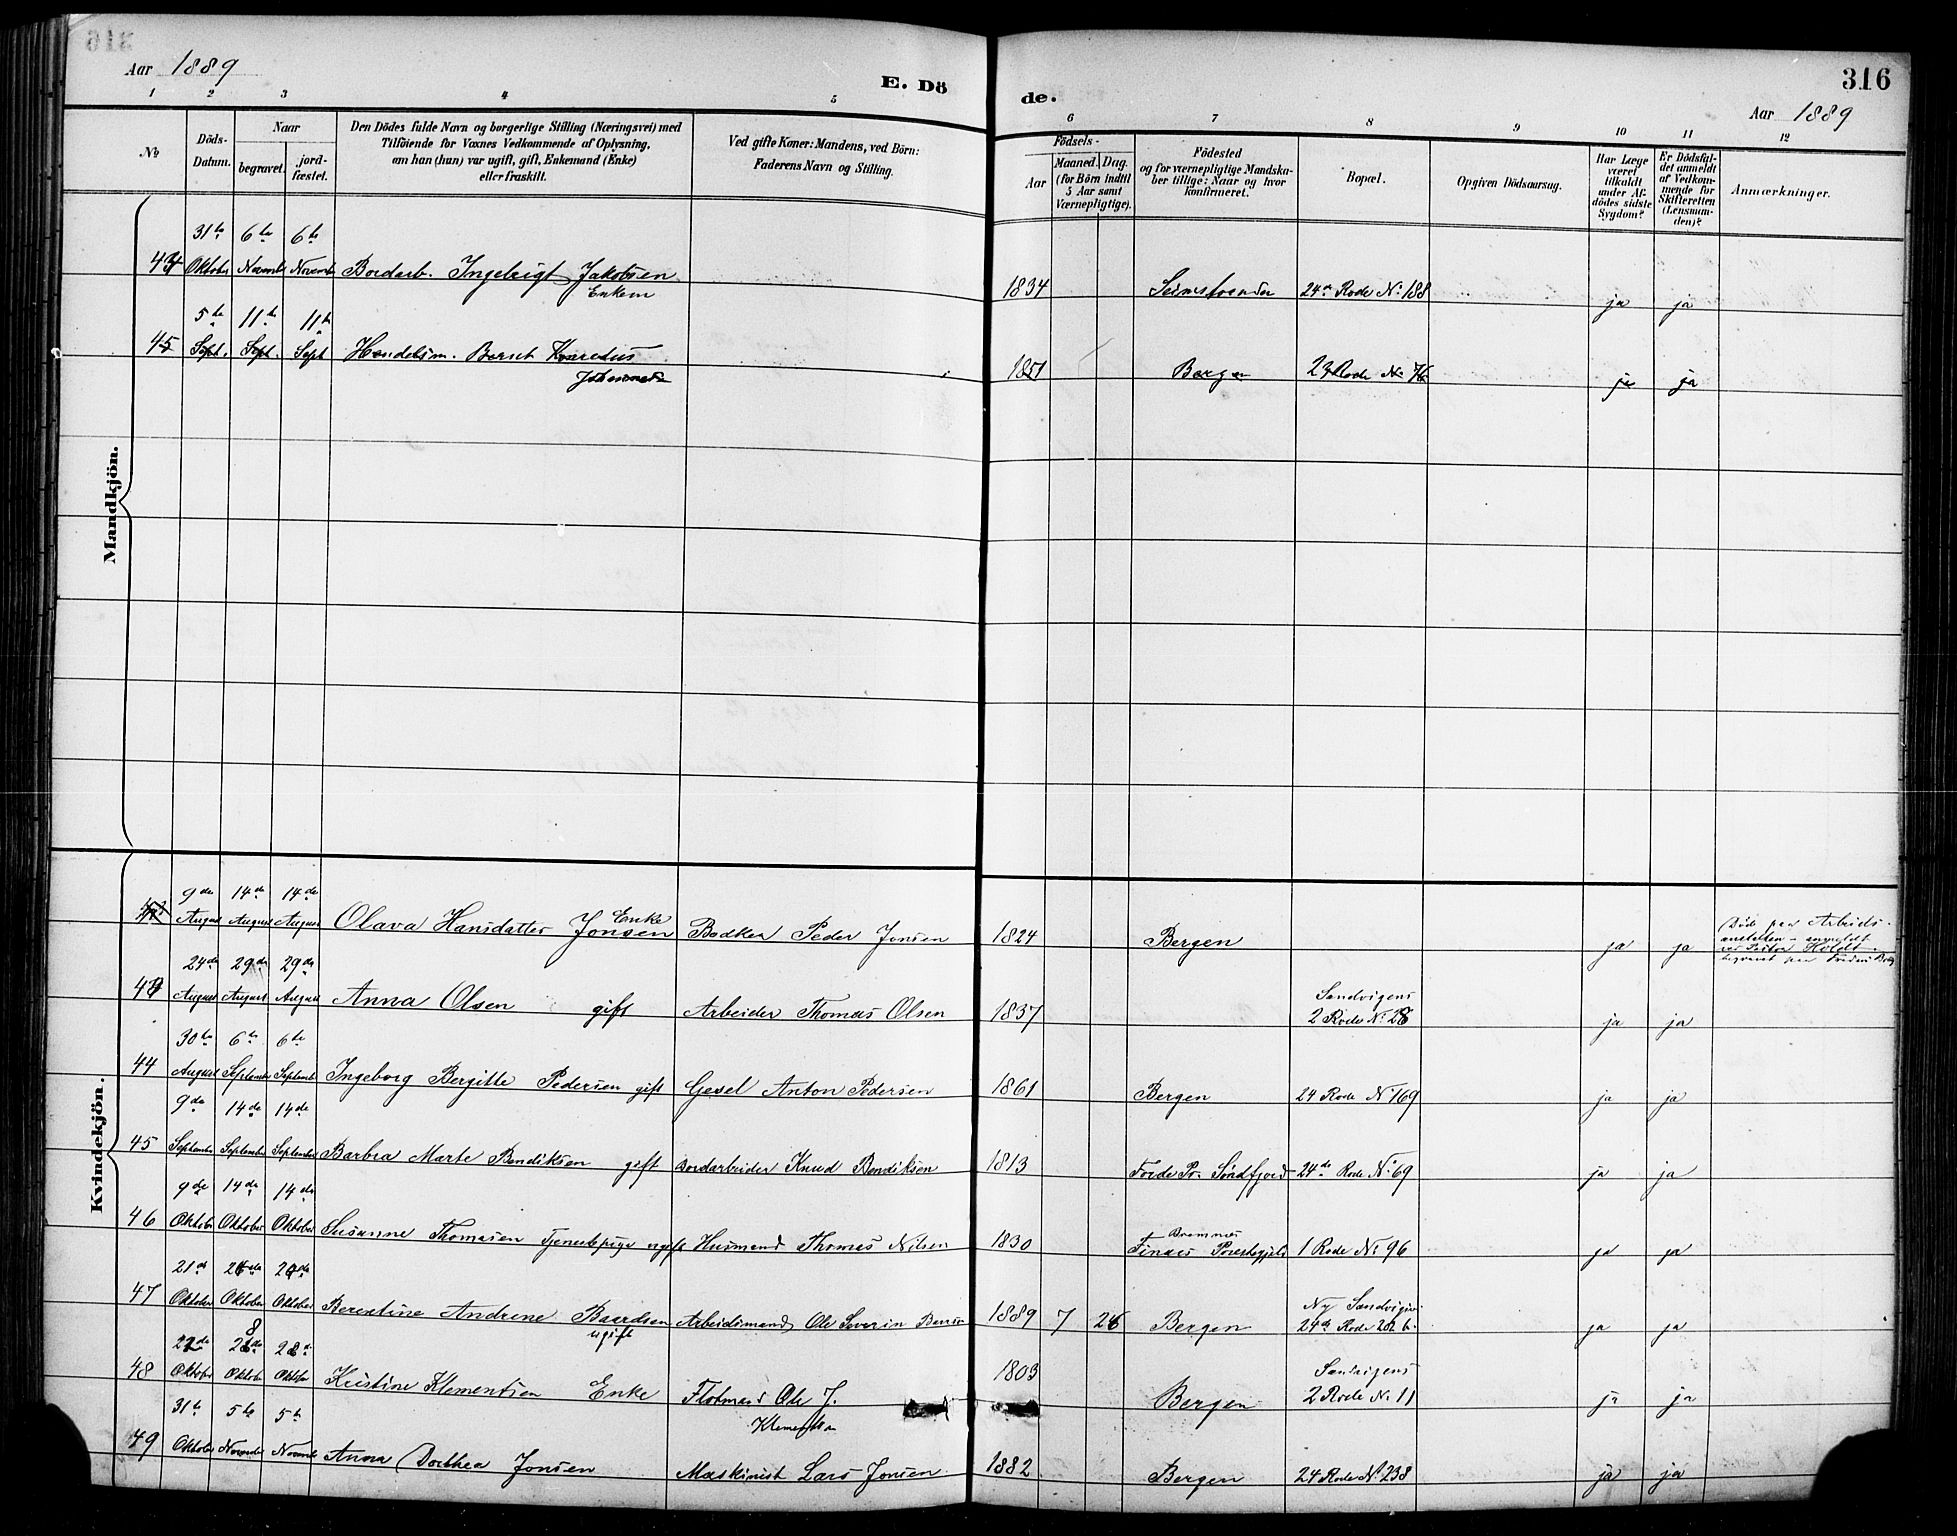 Aar 1889
E. Dö
de.
316
Aar 1889
1 2 3 4 5 6 7 8 9 10 11 12
No
Döds-Datum.
Naar
begravet.
jord-fæstet.
Den Dödes fulde Navn og borgerlige Stilling (Næringsvei) med
Tilföiende for Voxnes Vedkommende af Oplysning,
om han (hun) var ugift, gift, Enkemand (Enke)
eller fraskilt.
Ved gifte Koner: Mandens, ved Börn:
Faderens Navn og Stilling.
Födsels-
Aar
Maaned. Dag.
(for Börn indtil
5 Aar samt
Værnepligtige).
Födested
og for værnepligtige Mandska-
ber tillige: Naar og hvor
konfirmeret.
Bopæl.
Opgiven Dödsaarsag.
Har Læge
været
tilkaldt
under Af-
dödes sidste
Sygdom?
Er Dödsfal-
det anmeldt
af Vedkom-
mende for
Skifteretten
(Lensman-
den)?
Anmærkninger.
Mandkjön.
31te 6te 6te
44 Oktober Novemb Novembr Bordarb. Ingebrigt Jakobsen 1834 24de Rode No 188 ja ja
Enkem
5te 11te 11te
45 Sept. Sept. Sept Bernt 1851 Bergen Rode No 76 ja ja
Kvindekjön.
9de 14de 14de
August August August Olava Hansdatter Jonsen Enke Bødker Peder Jonsen 1824 Bergen ja ja
Død paa Arbeids-
anstalten - anmeldt
Holdt.
begravet paa
24de 29de 29de
43 August August August Anna Olsen gift Arbeider Thomas Olsen 1837 Sandvigens
2 Rode No 28 ja ja
30te 6te 6te
44 August Septembr Septembr Ingeborg Bergitte Pedersen gift Gesel Anton Pedersen 1861 Bergen 24 Rode No 169 ja ja
9de 14de 14de
45 Septembr Septembr Septembr Barbra Marte Bendiksen gift Bordarbeider Knud Bendiksen 1813 Førde Pr. Søndfjord 24de Rode No 69 ja ja
9de 14de 14de
46 Oktober Oktober Oktober Susanne Thomasen Tjenestepige ugift Husmand Thomas Nilsen 1830 Bremnes
Finaas Præstegjeld 1 Rode No 96 ja ja
21de 26de 26de
47 Oktober Oktober Oktober Berentine Andrine Baardsen Arbeidsmand Ole Severin 1889 7 26 Bergen Ny Sandvigsv.
24de Rode 202 b. ja ja
ugift
22de 28de 28de
48 Oktober Oktobr Oktobr Kristine Klementsen Enke Flotmand Ole J.
Klementsen 1803 Bergen Sandvigens
2 Rode No 11 ja ja
31te 5te 5te
49 Oktober Novembr Novembr Anna Dorthea Jonsen Maskinist Lars Jonsen 1882 Bergen 24 Rode No 238 ja ja